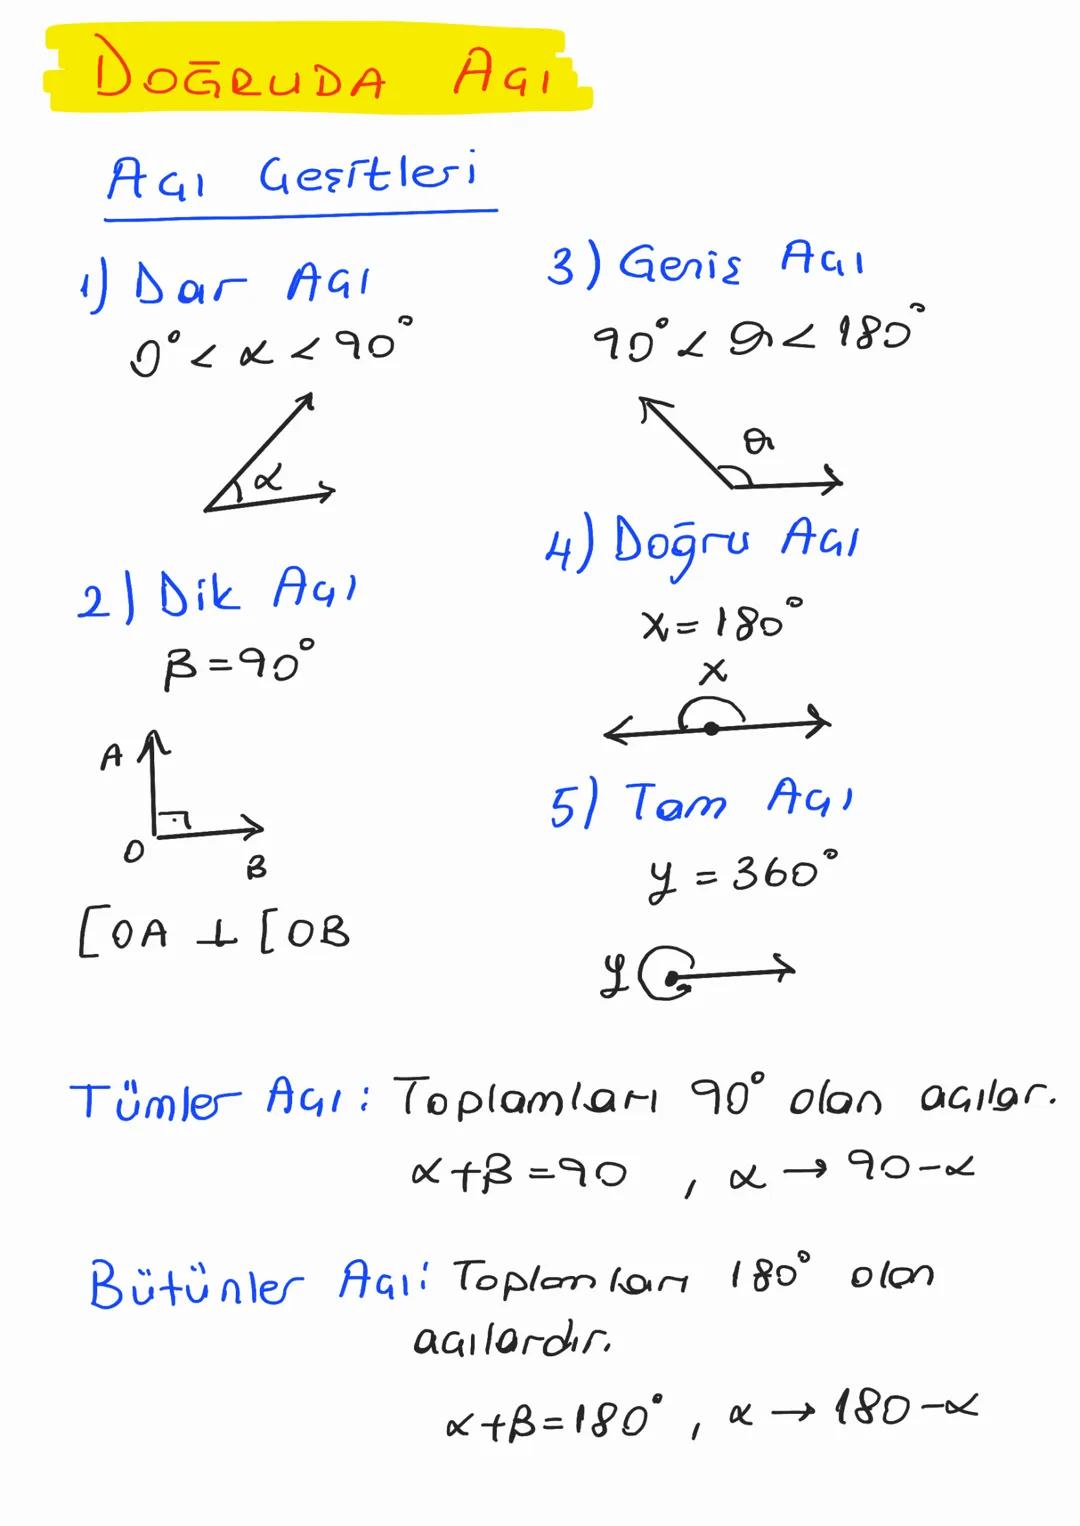 DOĞRUDA AÇI
Açı Çeşitleri
1) Dar Açı
0° < α < 90°
α
2) Dik Açı
β = 90°
A
O
B
[OA ⊥ [OB
3) Geniş Açı
90° < θ < 180°
θ
4) Doğru Açı
x = 180°
x
5) Tam Açı
y = 360°
y
Tümler Açı: Toplamları 90° olan açılar.
α+β=90 , α → 90-α
Bütünler Açı: Toplamları 180° olan
açılardır.
α+β=180° , α → 180-α